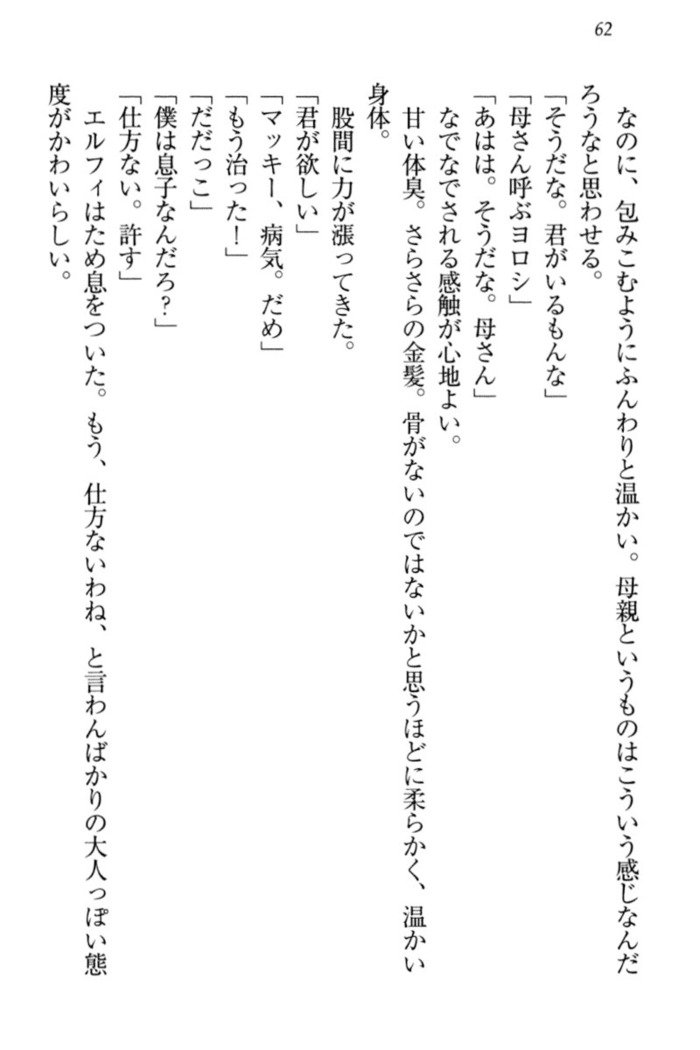 62
なのに、包みこむようにふんわりと温かい。母親というものはこういう感じなんだ
ろうなと思わせる。
「そうだな。君がいるもんな」
「母さん呼ぶヨロシ」
「あはは。そうだな。母さん」
なでなでされる感触が心地よい。
甘い体臭。さらさらの金髪。骨がないのではないかと思うほどに柔らかく、温かい
身体。
股間に力が漲ってきた。
「君が欲しい」
「マッキー、病気。だめ」
「もう治った！」
「だだっこ」
「僕は息子なんだろ？」
「仕方ない。許す」
エルフィはため息をついた。もう、仕方ないわね、と言わんばかりの大人っぽい態
度がかわいらしい。